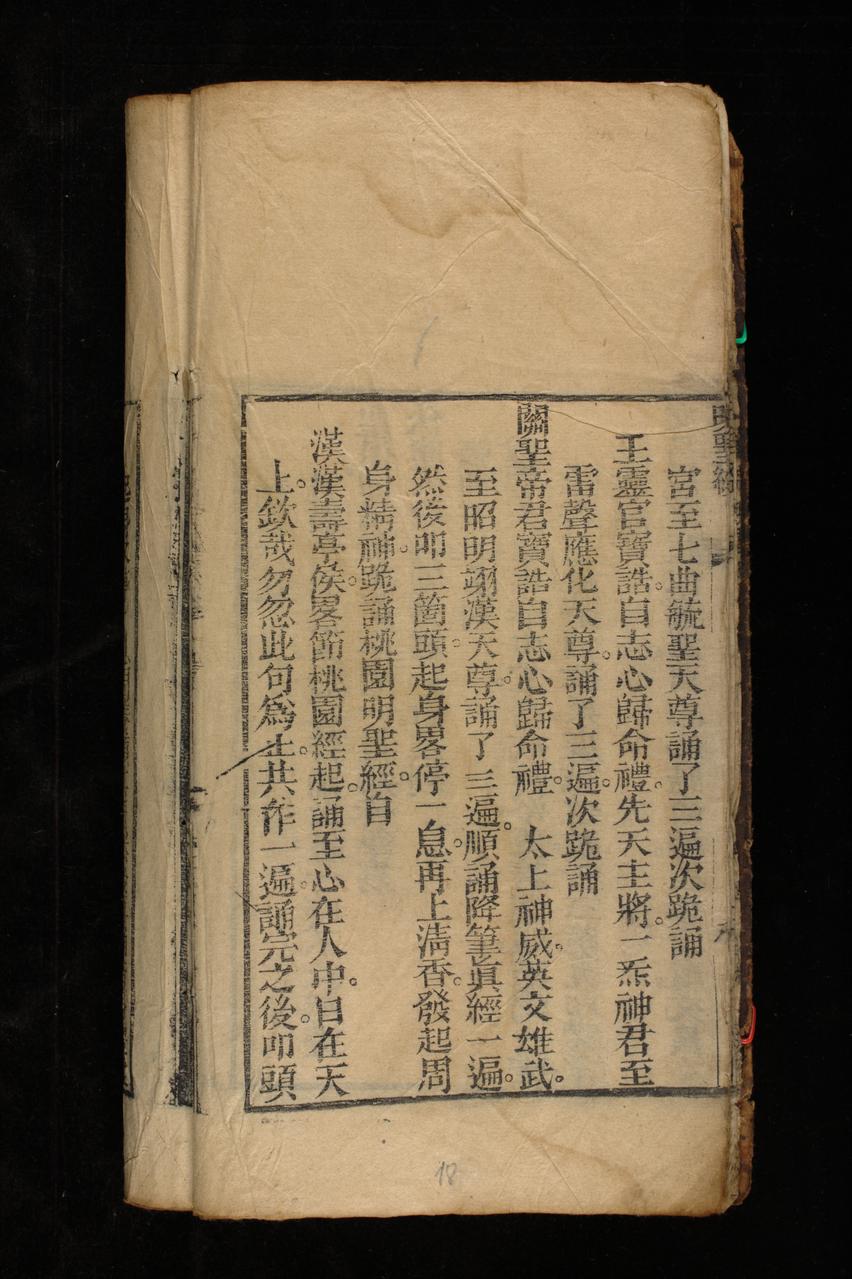 明聖經
宮至七曲毓聖天尊誦了三遍次跪誦
王靈官寶誥。自志心歸命禮。先天主將。一炁神君至
雷聲應化天尊。誦了三遍。次跪誦
關聖帝君寶誥自志心歸命禮。太上神威。英文雄武。
至昭明翊漢天尊。誦了三遍。順誦降筆眞經一遍。
然後叩三箇頭。起身畧停一息。再上清香。發起周
身精神。跪誦桃園明聖經。自
漢漢壽亭侯。畧節桃園經起。誦至心在人中。日在天
上。欽哉勿忽此句爲止。共作一遍。誦完之後。叩頭
18